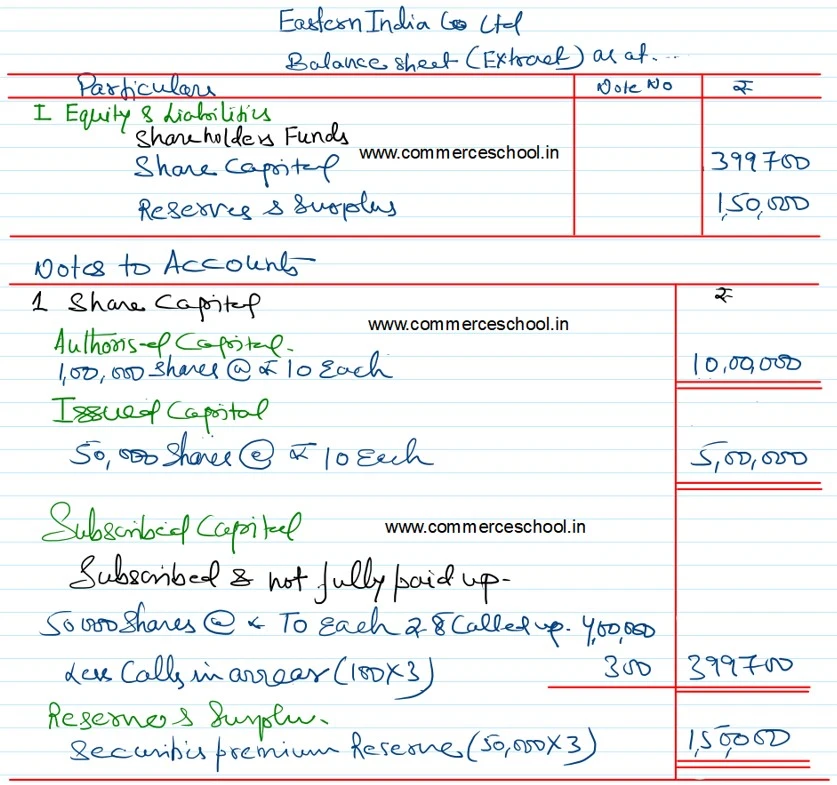 Eastern India Co Ltd
Balance sheet (Extract) as at....
Particulars Note No ₹
I Equity & Liabilities
Shareholders Funds
Share Capital www.commerceschool.in 399700
Reserves & Surplus 1,50,000
Notes to Accounts
1 Share Capital ₹
www.commerceschool.in
Authorised Capital.
1,00,000 Shares @ ₹ 10 Each 10,00,000
Issued Capital
50,000 Shares @ ₹ 10 Each 5,00,000
Subscribed Capital www.commerceschool.in
Subscribed & not fully paid up-
50000 Shares @ ₹ 10 Each ₹ 8 Called up. 4,00,000
Less Calls in arrear (100X3) 300 399700
Reserve & Surplu.
Securities premium Reserve (50,000X3) 1,50,000